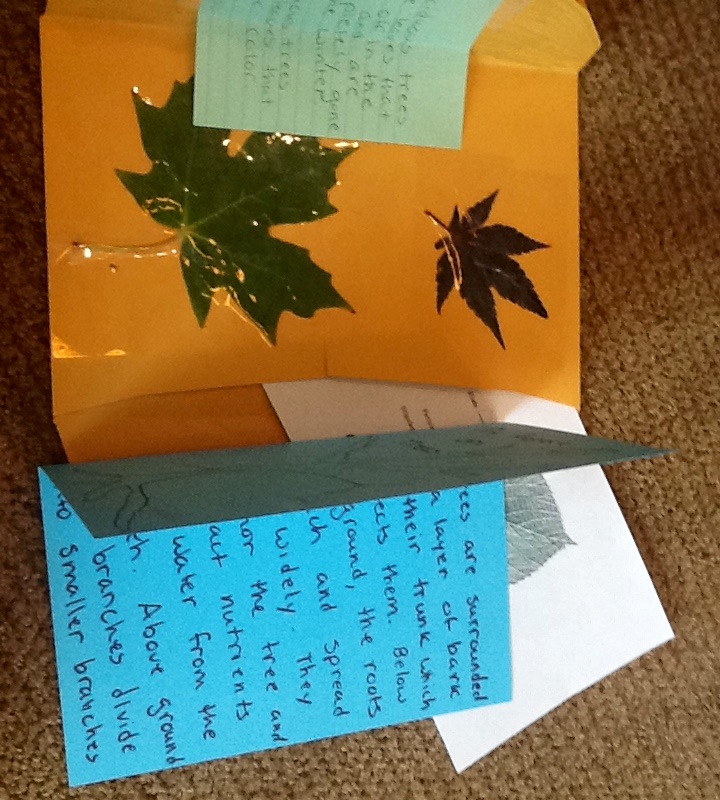 trees
leaves that
in the
are
pletely gone
winter
trees
leaves that
color
ees are surrounded
a layer of bark
their trunk which
ects them. Below
ground, the roots
ch and spread
widely. They
hor the tree and
act nutrients
water from the
th. Above ground
branches divide
to smaller branches